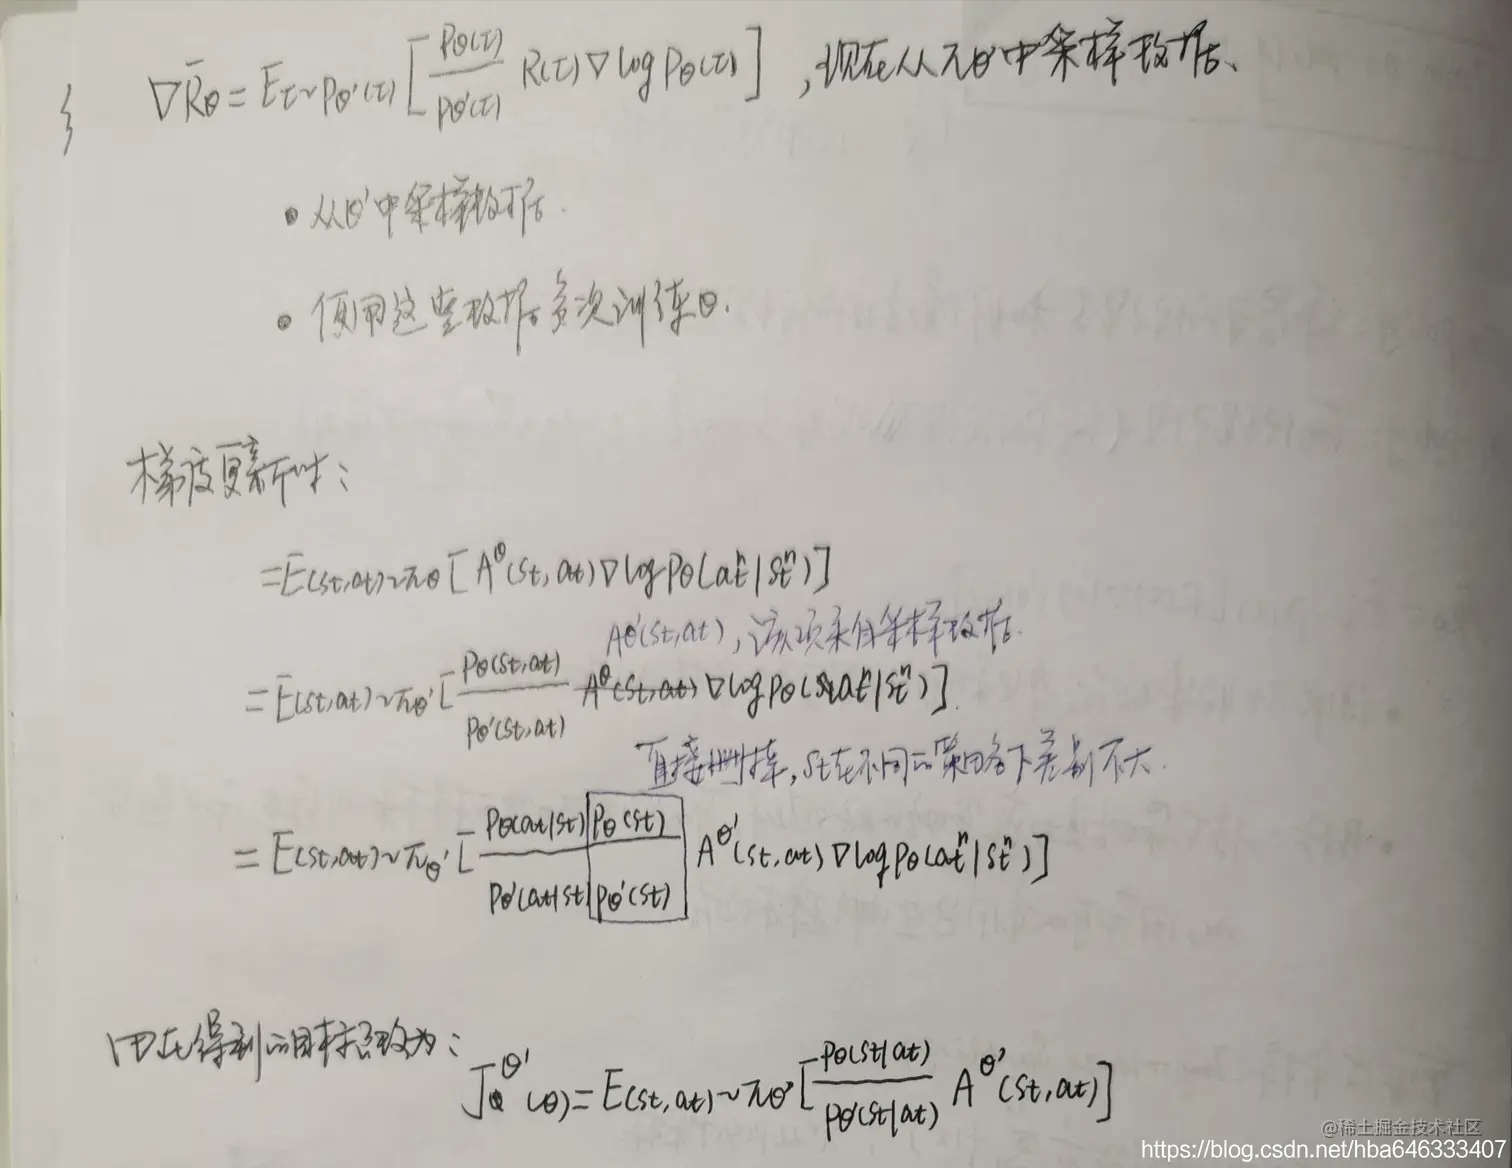 ∇R̄θ = Eτ~Pθ'(τ) [ Pθ(τ) / Pθ'(τ) R(τ) ∇log Pθ(τ) ] , 现在从πθ'中采样数据、
• 从θ'中采样数据.
• 使用这些数据多次训练θ.
梯度更新时:
= E(st,at)~πθ [ A^θ(st,at) ∇log Pθ(at^n|st^n) ]
Aθ'(st,at), 该项来自采样数据.
= E(st,at)~πθ' [ Pθ(st,at) / Pθ'(st,at) A^θ(st,at) ∇log Pθ(at^n|st^n) ].
直接删掉, st在不同的策略下差别不大.
= E(st,at)~πθ' [ Pθ(at|st) Pθ(st) / Pθ'(at|st) Pθ'(st) A^θ'(st,at) ∇log Pθ(at^n|st^n) ]
现在得到的目标函数为:
J^θ'(θ) = E(st,at)~πθ' [ Pθ(st|at) / Pθ'(st|at) A^θ'(st,at) ]
@稀土掘金技术社区
https://blog.csdn.net/hba646333407